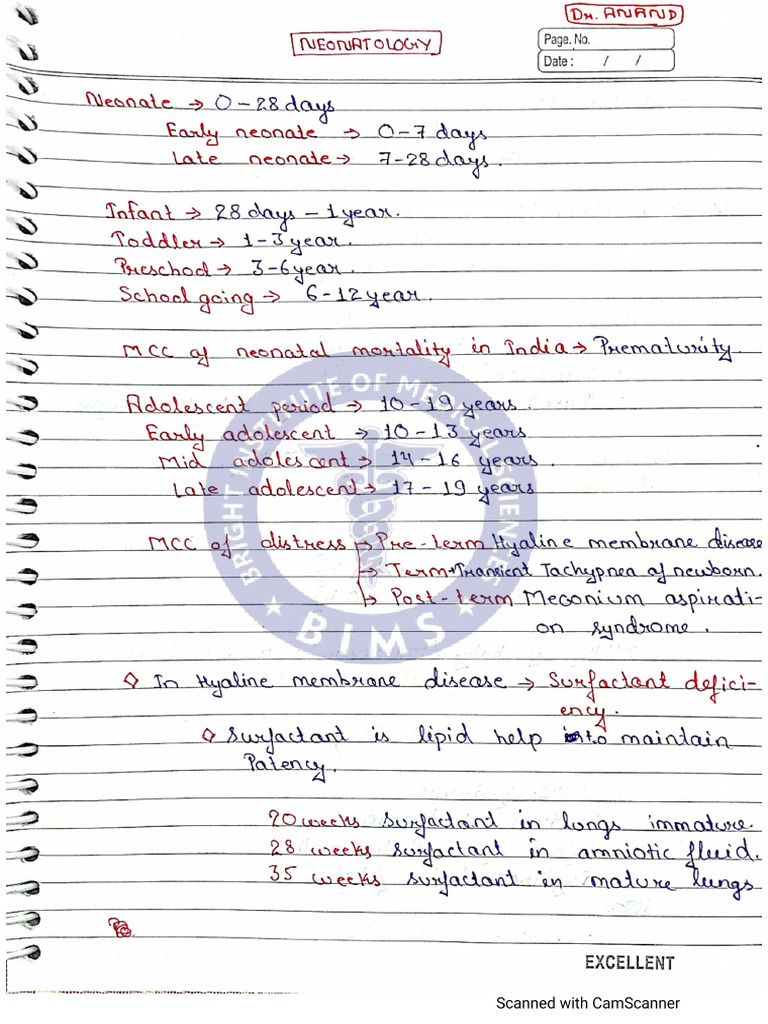 DR. ANAND
NEONATOLOGY
Page. No.
Date : / /
Neonate → 0-28 days
Early neonate → 0-7 days
Late neonate → 7-28 days.
Infant → 28 days - 1 year.
Toddler → 1-3 year.
Preschool → 3-6 year.
School going → 6-12 year.
MCC of neonatal mortality in India → Prematurity.
Adolescent period → 10-19 years.
Early adolescent → 10-13 years
Mid adolescent → 14-16 years.
Late adolescent → 17-19 years
MCC of distress → Pre-term Hyaline membrane disease
→ Term → Transient Tachypnea of newborn.
→ Post-term Meconium aspirati-
on syndrome.
◇ In Hyaline membrane disease → Surfactant defici-
ency.
◇ Surfactant is lipid help to maintain
Patency.
20 weeks surfactant in lungs immature.
28 weeks surfactant in amniotic fluid.
35 weeks surfactant in mature lungs
BRIGHT INSTITUTE OF MEDICAL SCIENCES
★ BIMS ★
EXCELLENT
Scanned with CamScanner